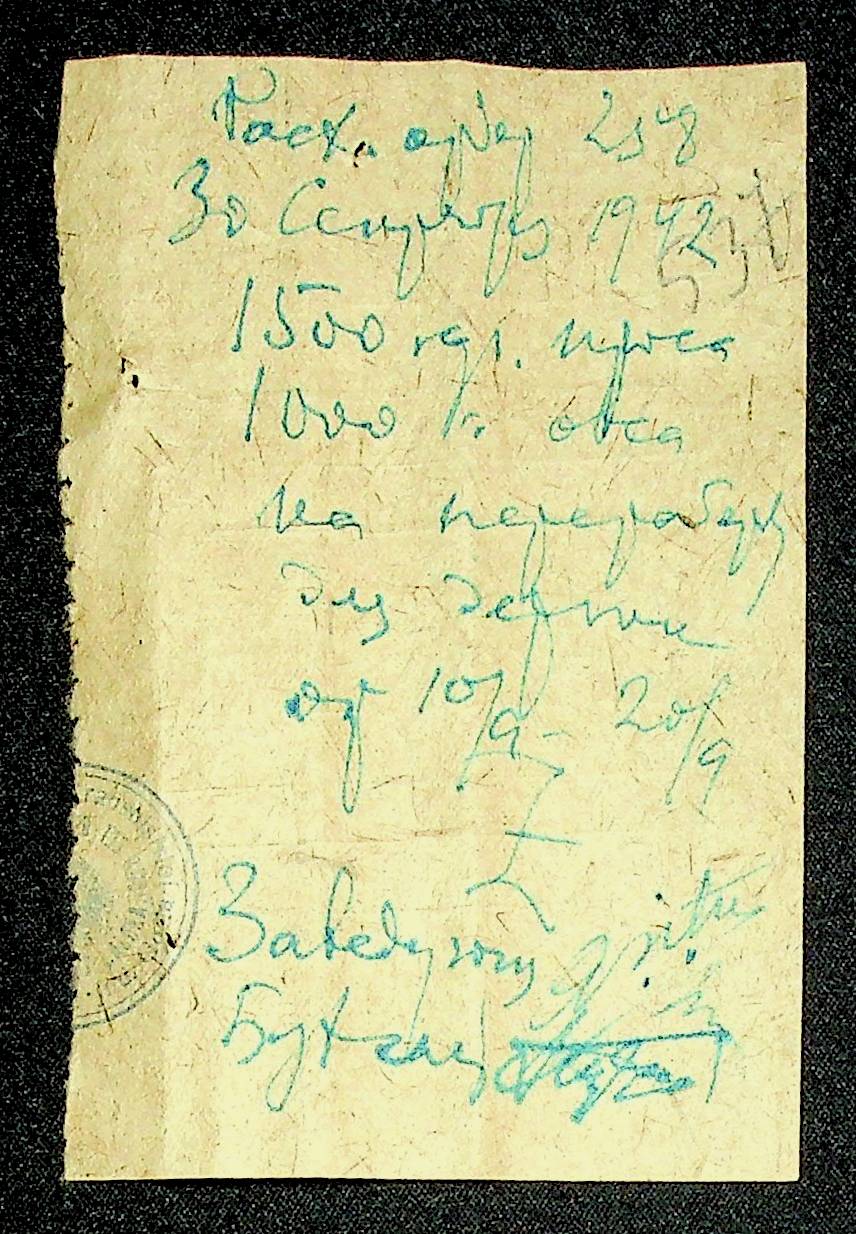 Расх. ордер 258
30 Сентября 1942
537
1500 кгр. проса
1000 к. овса
на переработку
для
от 10/9 - 20/9
Заведующий
Бухгалтер